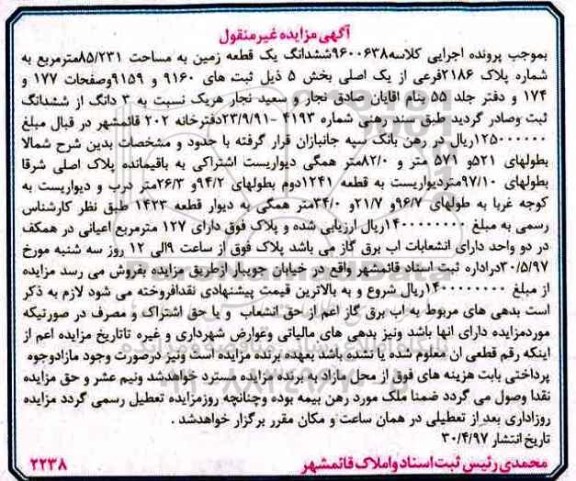 آگهی مزایده غیر منقول
بموجب پرونده اجرایی کلاسه۹۶۰۰۶۳۸ششدانگ یک قطعه زمین به مساحت ۸۵/۲۳۱مترمربع به
شماره پلاک ۲۱۸۶فرعی از یک اصلی بخش ۵ ذیل ثبت های ۹۱۶۰ و ۹۱۵۹وصفحات ۱۷۷ و
۱۷۴ و دفتر جلد ۵۵ بنام اقایان صادق نجار و سعید نجار هریک نسبت به ۳ دانگ از ششدانگ
ثبت وصادر گردید طبق سند رهنی شماره ۴۱۹۳ -۲۳/۹/۹۱دفترخانه ۲۰۲ قائمشهر در قبال مبلغ
۱۲۵۰۰۰۰۰۰۰ریال در رهن بانک سپه جانبازان قرار گرفته با حدود و مشخصات بدین شرح شمالا
بطولهای ۵۲۱و ۵۷۱ متر و ۸۲/۰متر همگی دیواریست اشتراکی به باقیمانده پلاک اصلی شرقا
بطولهای ۹۷/۱۰متردیواریست به قطعه ۱۲۴۱دوم بطولهای ۹۴/۲و ۲۶/۳متر درب و دیواریست به
کوچه غربا به طولهای ۹۶/۷و ۲۱/۷و ۳۴/۰متر همگی به دیوار قطعه ۱۴۳۳ طبق نظر کارشناس
رسمی به مبلغ ۱۴۰۰۰۰۰۰۰۰۰ریال ارزیابی شده و پلاک فوق دارای ۱۲۷ مترمربع اعیانی در همکف
در دو واحد دارای انشعابات اب برق گاز می باشد پلاک فوق از ساعت ۹الی ۱۲ روز سه شنبه مورخ
۳۰/۵/۹۷دراداره ثبت اسناد قائمشهر واقع در خیابان جویبار ازطریق مزایده بفروش می رسد مزایده
از مبلغ ۱۴۰۰۰۰۰۰۰۰۰ریال شروع و به بالاترین قیمت پیشنهادی نقدافروخته می شود لازم به ذکر
است بدهی های مربوط به اب برق گاز اعم از حق انشعاب و یا حق اشتراک و مصرف در صورتیکه
موردمزایده دارای انها باشد ونیز بدهی های مالیاتی وعوارض شهرداری و غیره تاتاریخ مزایده اعم از
اینکه رقم قطعی ان معلوم شده یا نشده باشد بعهده برنده مزایده است ونیز درصورت وجود مازادوجوه
پرداختی بابت هزینه های فوق از محل مازاد به برنده مزایده مسترد خواهدشد ونیم عشر و حق مزایده
نقدا وصول می گردد ضمنا ملک مورد رهن بیمه بوده وچنانچه روزمزایده تعطیل رسمی گردد مزایده
روزاداری بعد از تعطیلی در همان ساعت و مکان مقرر برگزار خواهدشد .
تاریخ انتشار ۳۰/۴/۹۷
محمدی رئیس ثبت اسناد و املاک قائمشهر
۲۲۳۸